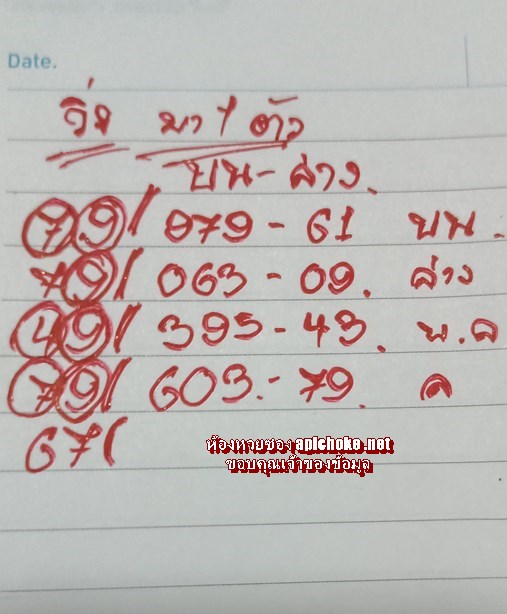 Date.
วิ่ง มา 1 ตัว
บน - ล่าง.
79/ 979 - 61 บน.
79/ 063 - 09. ล่าง
49/ 395 - 43. บ.ล
79/ 603. - 79. ล
67/
ห้องหวยซอง apichoke.net
ขอบคุณเจ้าของข้อมูล